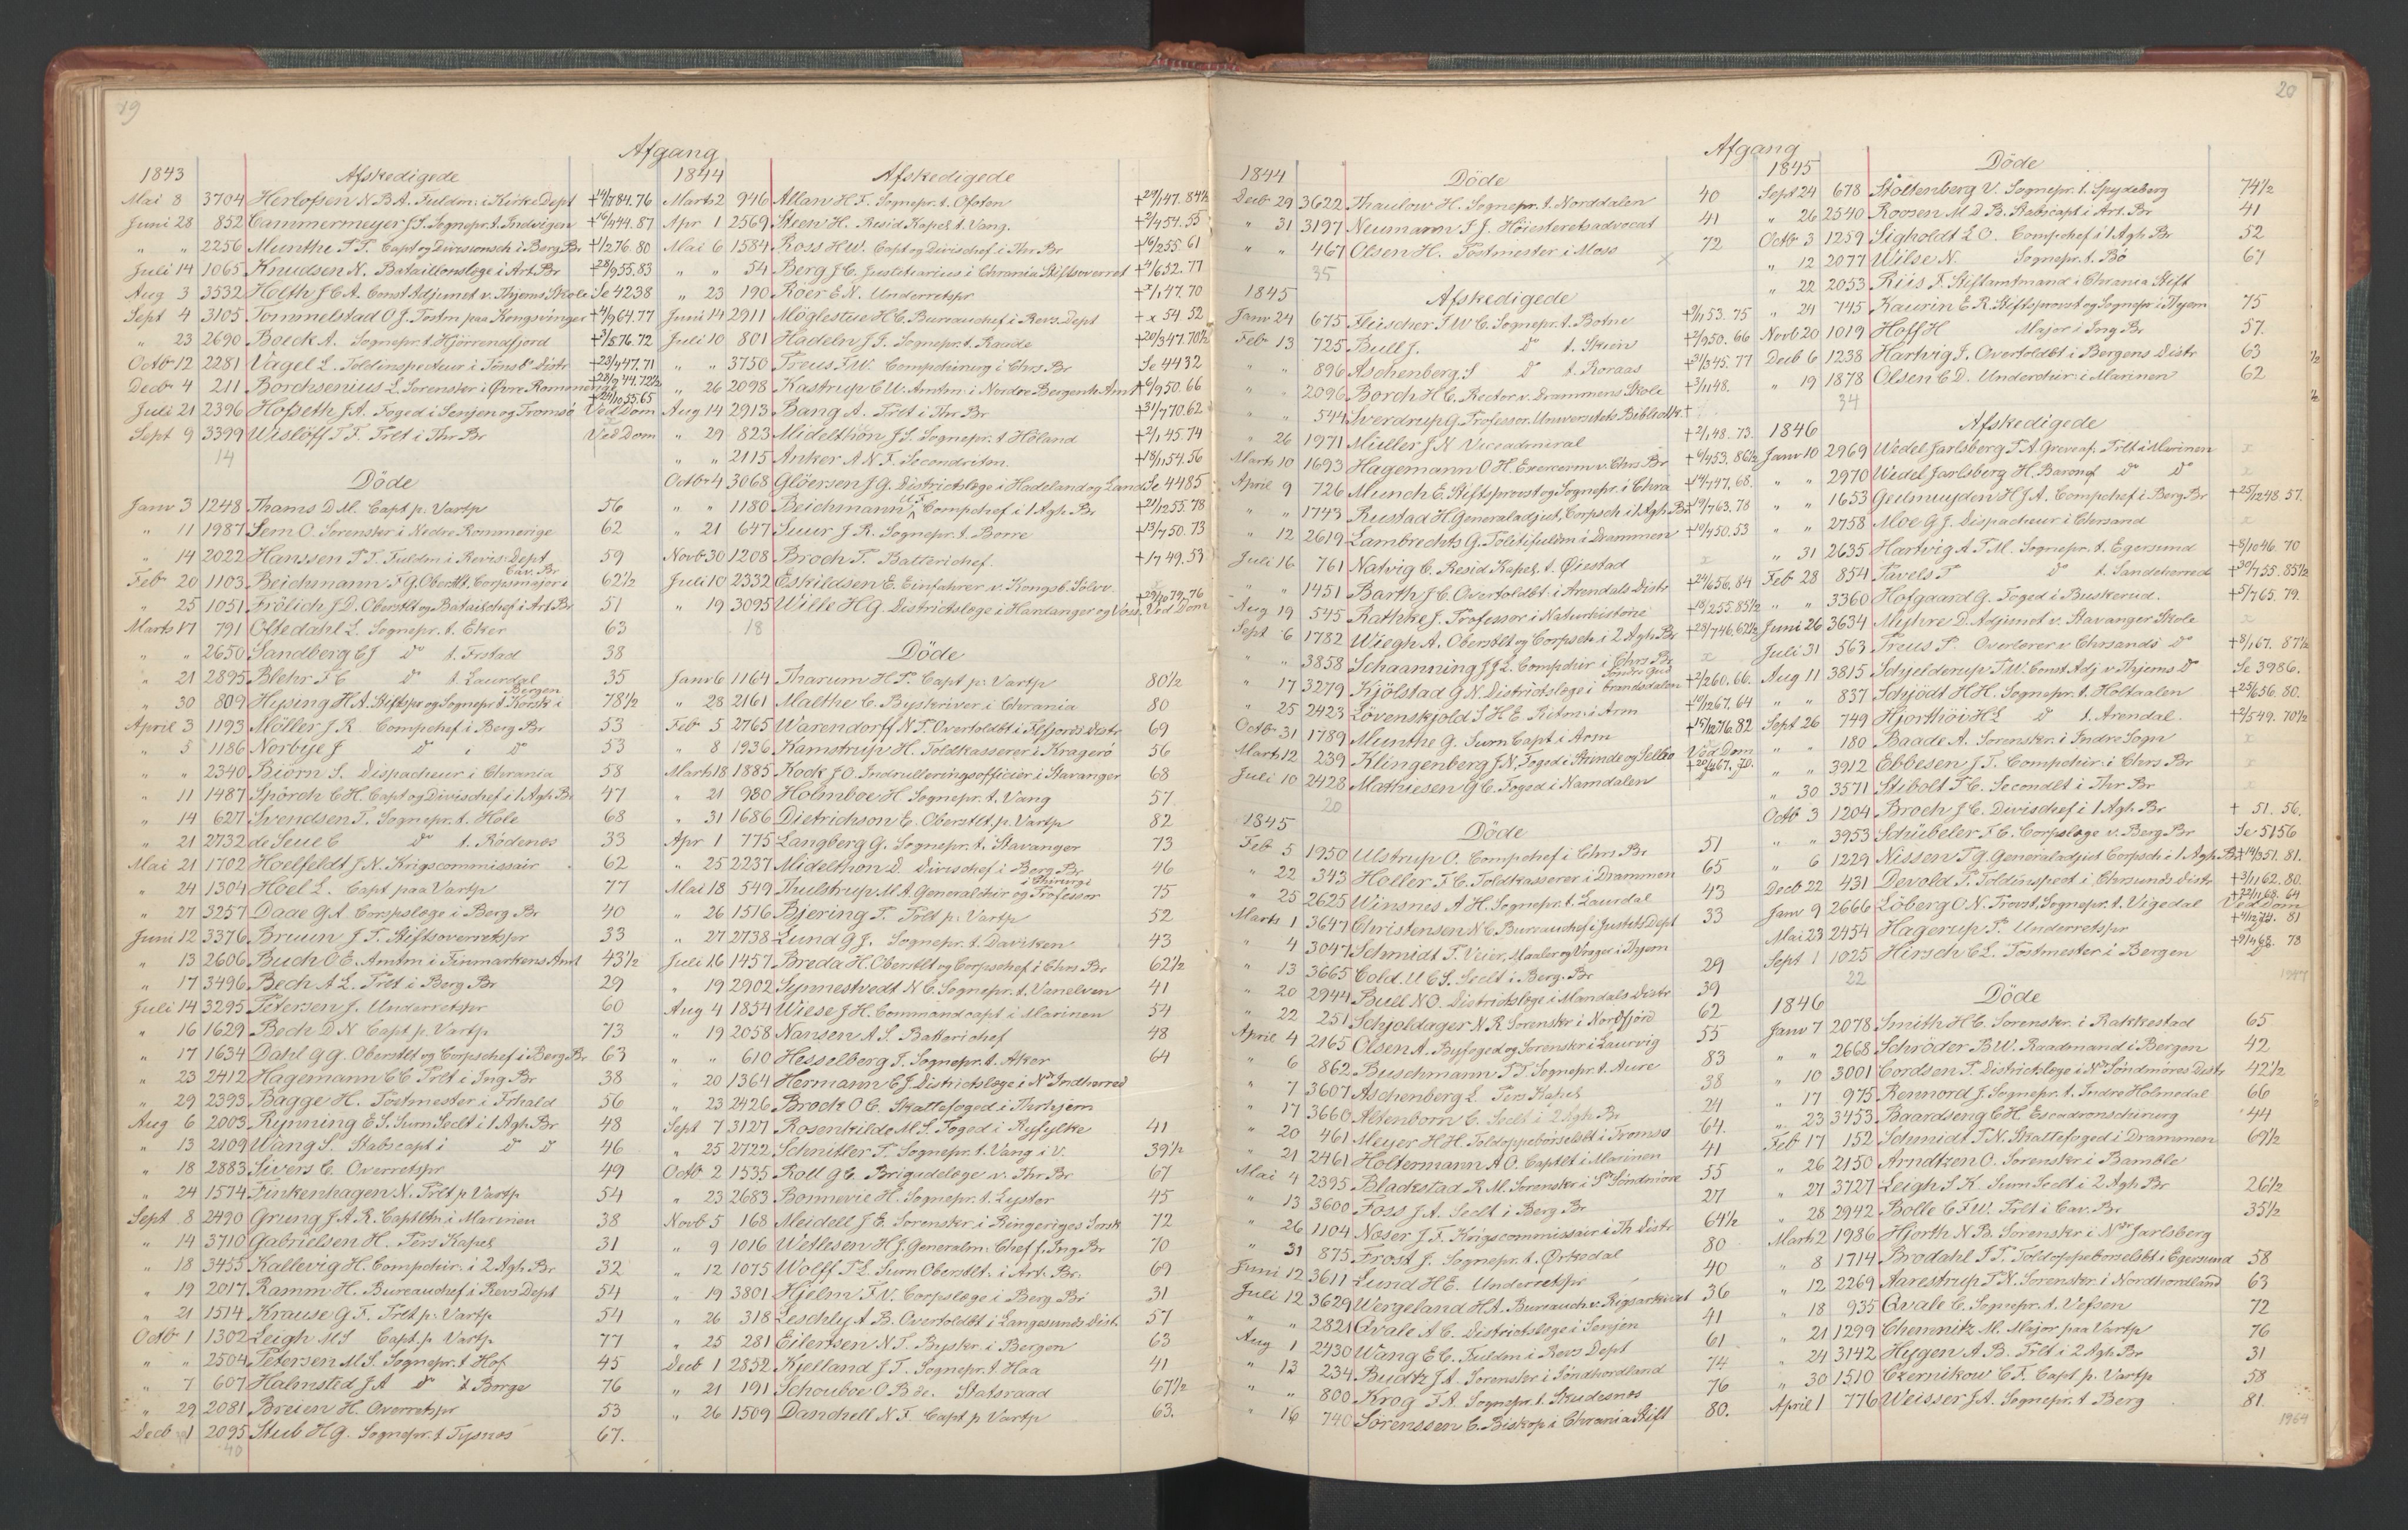 19
Afgang
1843 Afskedigede
Mai 8 3704 Herlofsen N B A. Fuldm. i Kirke Dept +14/7 84.76
Juni 28 852 Cammermeyer J S. Sognepr. t. Indvigen +16/4 44.87
" " 2256 Munthe P P. Capt og Divisionsch i Berg Br +1/2 76.80
Juli 14 1065 Knudsen N. Bataillonslæge i Art Br +28/9 55.83
Aug 3 3532 Holth J C A. Const Adjunct v. Thjems Skole Se 4238
Sept 4 3105 Tommelstad O J. Postm paa Kongsvinger +4/9 64.77
" 23 2690 Boeck A. Sognepr. t. Hjörrendfjord +3/5 76.72
Octbr 12 2281 Vagel L. Toldinspecteur i Tönsb. Distr +23/9 47.71
Decbr 4 211 Borchsenius L. Sorenskr i Øvre Rommerige +28/9 44.72½
Juli 21 2396 Hofseth J A. Foged i Senjen og Tromsö +24/10 55.65 Ved Dom
Sept 9 3399 Wislöff P F. Prlt i Thr Br Ved Dom
14
Döde
Janr 3 1248 Thams D M. Capt p. Vartp 56
" 11 1987 Sem O. Sorenskr i Nedre Rommerige 62
" 14 2022 Hanssen P T. Fuldm i Revis. Dept 59
Feb 20 1103 Beichmann F G. Oberstlt. Corpsmajor i Cav. Br. 62½
" 25 1051 Frölich J D. Oberstlt og Bataischef i Art Br 51
Marts 17 791 Oftedahl L. Sognepr. t. Eker 63
" " 2650 Sandberg C J do t. Frstad 38
" 21 2895 Blehr F C do t. Laurdal 35
" 30 809 Hysing H A. Stiftspr og Sognepr t Korsk i Bergen 78½
April 3 1193 Möller J R. Compchef i Berg Br 53
" 5 1186 Norbye J do i do 53
" " 2340 Biörn S. Dispacheur i Chrania 58
" 11 1487 Spörch C H. Capt og Divischef i 1 Agh Br 47
" 14 627 Svendsen T. Sognepr. t. Hole 68
" 21 2732 de Seue C do t. Rödenes 33
Mai 21 1702 Hoelfeldt J N. Krigscommissair 62
" 24 1304 Höel L. Capt paa Vartp 77
" 27 3257 Daae G A Corpslæge i Berg Br 40
Juni 12 3376 Bruun J P. Stiftsoverretspr 33
" 13 2606 Buch O E. Amtm i Finmarkens Amt 43½
" 17 3496 Bech A L. Prlt i Berg Br 29
Juli 14 3295 Petersen J. Underretspr 60
" 16 1629 Bech D N Capt p. Vartp 73
" 17 1634 Dahl G G. Oberstlt og Corpschef i Berg Br 63
" 23 2412 Hagemann C C Prlt i Ing Br 38
" 29 2393 Bagge H. Postmester i Frhald 56
Aug 6 2003 Rynning E S. Surn Seclt i 1 Agh Br 48
" 13 2109 Wang S. Stabscapt i do do 46
" 18 2883 Sivers C. Overretspr 49
" 24 1574 Finkenhagen N. Prlt p Vartp 54
Sept 8 2490 Grung J A R. Captltn i Marinen 38
" 14 3710 Gabrielsen H. Pers Kapel 31
" 18 3455 Kallevig H. Compchir. i 2 Agh Br 32
" 19 2017 Ramm H. Bureauchef i Revs Dept 54
" 21 1514 Krause G F. Prlt p. Vartp 54
Octb 1 1302 Leigh M S Capt p Vartp 77
" " 2504 Petersen M S. Sognepr. t Hof 45
" 7 607 Halmsted J A do t Borge 76
" 29 2081 Breien H. Overretspr 53
Decb 1 2095 Stub H G. Sognepr. t Tysnes 67.
40
1844 Afskedigede
Marts 2 946 Allan H F. Sognepr. t. Ofoten +29/1 47.84½
Apr 1 2569 Steen H. Resid Kapel t Vang. +2/4 54.55
Mai 6 1584 Ross H W. Capt og Divischef i Thr Br +14/2 55 61
" " 54 Berg J C. Justitiarius i Chrania Stiftsoverret +4/6 52.77
" 23 190 Roer E N. Underretspr +7/1 47.70
Juni 14 2911 Möglestue H C. Bureauchef i Revs. Dept +x 54 52
Juli 10 801 Hadeln J J. Sognepr. t. Raade +20/3 47.70½
" " 3750 Preus F W. Compchirurg i Chrs Br Se 4432
" 26 2098 Kastrup C W. Amtm i Nordre Bergenh Amt +6/9 50.66
Aug 14 2913 Bang A. Prlt i Thr Br +31/7 70.62
" 29 823 Midelthon J S. Sognepr. t Höland +2/1 45.74
" " 2115 Anker A N F. Secondritm. +18/11 54.56
Octbr 4 3068 Glöersen J G. Districtslæge i Hadeland og Land Se 4485
" " 1180 Beichmann, Compchef i 1 Agh Br +21/12 55.78
" 21 647 Suur J R. Sognepr. t. Borre +13/4 50.73
Novb 30 1208 Broch P. Batterichef. +1/7 49.53
Juli 10 2332 Eskildsen E. Einfahrer v. Kongsb. Sölvv +29/10 79.76
" 19 3095 Wille H G. Districtslæge i Hardanger og Voss, Ved Dom
18
Döde
Janr 6 1164 Tharum H P. Capt p. Vartp 80½
" 28 2161 Malthe C. Byskriver i Chrania 80
Feb 5 2765 Warendorff N P. Overtoldbt i Flefjords Distr 69
" 8 1936 Kamstrup H. Toldkasserer i Kragerö 56
Marts 18 1885 Kock J O. Indrulleringsofficier i Stavanger 68
" 21 930 Holmboe H. Sognepr. t. Vang 57
" 31 1686 Dietrichson E. Oberstlt. p. Vartp 82
Apr 1 775 Langberg G. Sognepr. t. Stavanger 73
" 25 2237 Midelthon D. Divischef i Berg Br 46
Mai 18 549 Thulstrup M A. Generalchir og Professor i Chirurgi 75
" 26 1516 Bjering P. Prlt p. Vartp 52
" 27 2738 Lund G J. Sognepr. t. Daviken 43
Juli 16 1457 Breda H. Oberstlt og Corpschef i Chrs Br 62½
" 19 2902 Synnestvedt N C. Sognepr. t. Vanelven 41
Aug 4 1854 Wiese J H. Commandcapt i Marinen 54
" 19 2058 Nansen A S. Batterichef 48
" " 610 Hesselberg I. Sognepr. t. Aker 64
" 20 1364 Hermann C J. Districtslæge i Nr Indherred
" 23 2426 Brock O C. Skattefoged i Thrhjem
Sept 7 3127 Rosenkilde M S. Foged i Ryfylke 41
" 25 2722 Schnitler P. Sognepr. t. Vang i V. 39½
Octb 2 1535 Roll G C. Brigadelæge v. Thr Br 67
" 23 2683 Bonnevie H. Sognepr. t. Lyster 45
Novb 5 168 Meidell J E. Sorenskr. i Ringeriges Sorsk 72
" 9 1016 Wetlesen H J. Generalm. Chef f. Ing Br 70
" 12 1075 Wolff P L. Surn Oberstlt. i Art. Br. 69
" 19 3801 Hjelm F V. Corpslæge i Berg Br 31
" 26 318 Leschly A B. Overtoldbt i Langesunds Distr 57
" 25 281 Eilertsen N T. Byskr. i Bergen 63
Decb 1 2852 Kjelland J T. Sognepr. t Haa 41
" 21 191 Schouboe O B de. Statsraad 67½
" 26 1509 Danchell N F. Capt p Vartp 63.
20
Afgang
1844 Döde
Decb 29 3622 Thaulow H. Sognepr. t. Norddalen 40
" 31 3197 Neumann J J. Höiesteretsadvocat 41
" 467 Olsen H. Postmester i Moss 72
35
1845 Afskedigede
Janr 24 675 Fleischer J W C. Sognepr. t. Botne +9/11 53.75
Feb 13 725 Bull J. do t. Skien +2/9 50.66
" " 896 Aschenberg S do t. Roraas +31/3 45.77
" 2096 Borch H C. Rector v. Drammens Skole +3/11 48.
" " 544 Sverdrup G. Professor. Universitets Bibliothk. +
" 26 1971 Müller J N Viceadmiral +2/1 48.73.
Marts 10 1693 Hagemann O H. Exercerm v. Chrs Br +6/4 53.86½
April 9 726 Munch E. Stiftsprovst og Sognepr. i Chra +14/7 47.68.
" " 1743 Rustad H. Generaladjut, Corpsch. i 1 Agh Br +19/7 63.78
" 12 2619 Lambrechts G. Politifuldm i Drammen +10/4 50.53
Juli 16 761 Natvig C. Resid Kapel. t. Øiestad x
" 1451 Barth J C. Overtoldbt. i Arendals Distr +24/6 56.84
Aug 19 545 Rathke J. Professor i Naturhistorie +18/2 55.85½
Sept 6 1782 Wiegh A. Oberstlt og Corpsch i 2 Agh Br +28/7 46.62½
" " 3858 Schaanning J J L. Compchir i Chrs Br x
" 17 3279 Kjölstad G N. Districtslæge i Söndre Gudbrandsdalen +2/2 60.66.
" 25 2423 Lövenskjold S H E. Ritm. i Arm +14/12 67.64
Octb 31 1789 Munthe G. Surn Capt i Arm +15/12 76.82
Marts 12 239 Klingenberg J N. Foged i Strinde og Selbo Ved Dom +20/4 67.70.
Juli 10 2428 Mathiesen G C. Foged i Namdalen do
20
1845 Döde
Feb 5 1950 Ulstrup O. Compchef i Chrs Br 51
" 22 343 Holler F C. Toldkasserer i Drammen 65
" 25 2625 Winsnes A H. Sognepr. t. Laurdal 43
Marts 1 3647 Christensen N C. Bureauchef i Justits Dept 33
" 4 3047 Schmidt P. Veier, Maaler og Vrager i Thjem
" 13 3665 Cold. U C S. Seclt i Berg. Br 29
" 20 2944 Bull N O. Districtslæge i Mandals Distr 39
" 22 251 Schjoldager N R Sorenskr i Nordfjord 62
April 4 2165 Olsen A. Byfoged og Sorenskr i Laurvig 55
" 6 862 Buschmann P T Sognepr. t. Aure 83
" 7 3607 Aschenberg L. Pers Kapel 38
" 17 3660 Altenborn C. Seclt i 2 Agh Br 24
" 20 461 Meyer H H. Toldoppebörselsbt i Tromsö 64.
" 21 2461 Holtermann A O. Captlt i Marinen 41
Mai 4 2395 Blackstad R M. Sorenskr i Sr Söndmöre 55
" 13 3600 Foss J A. Seclt i Berg Br 27
" 26 1104 Næser J F. Krigscommissair i Th Distr 64½
" 31 875 Frost J. Sognepr. t. Ørkedal 80
Juni 12 3611 Lund H E. Underretspr 40
Juli 12 3629 Wergeland H A. Bureauch v. Rigsarkivet 36
" " 2821 Qvale A C. Districtslæge i Senjen 41
Aug 1 2430 Wang E C. Fuldm i Revs Dept 61
" 13 234 Budtz J A. Sorenskr i Söndhordland 74
" " 800 Krog F A. Sognepr. t. Skudesnes 76
" 16 740 Sörenssen C. Biskop i Chrania Stift 80.
1845 Döde
Sept 24 678 Stoltenberg V. Sognepr. t. Spydeberg 74½
" 26 2540 Roosen M D B. Stabscapt i Art. Br 41
Octb 3 1259 Sigholdt L O. Compchef i 1 Agh Br 52
" 12 2077 Wilse N. Sognepr. t. Bö 61
" 22 2053 Riis F. Stiftamtmand i Chrania Stift
" 24 745 Kaurin E R. Stiftsprovst og Sognepr i Thjem 75
Novb 20 1019 Hoff H Major i Ing Br 57.
Decb 6 1238 Hartvig J. Overtoldbt i Bergens Distr 63
" 19 1878 Olsen C D. Underchir. i Marinen 62
34
1846 Afskedigede
Janr 10 2969 Wedel Jarlsberg F A. Greve af. Prlt i Marinen x
" " 2970 Wedel Jarlsberg H. Baron af do do x
" " 1653 Geelmuyden H J A. Compchef i Berg Br +25/12 48 57.
" " 2758 Moe G J. Dispacheur i Chrsand x
" 31 2635 Hartvig A T M. Sognepr. t. Egersund +8/10 46.70
Feb 28 854 Pavels P do t. Sandeherred +30/7 55.85½
" " 3360 Hofgaard G. Foged i Buskerud. +5/7 65.79.
Juni 26 3634 Myhre D. Adjunct v. Stavanger Skole x
Juli 31 563 Preus P. Overlærer v. Chrsands do +8/1 67.87½
Aug 11 3815 Schjelderup P W. Const. Adj v Thjems do Se 3986.
" " 837 Schjödt H H. Sognepr. t. Holtaalen +25/6 56.80.
Sept 26 749 Hjorthöi H L do t. Arendal. +2/5 49.70½
" " 180 Baade A. Sorenskr. i Indre Sogn x
" " 3912 Ebbesen J T. Compchir. i Chrs Br x
" 30 3571 Stibolt P C. Secondlt i Thr Br x
Octb 3 1204 Broch J C. Divischef i 1 Agh Br + 51.56.
" " 3953 Schübeler F C. Corpslæge v. Berg Br Se 5156
" 6 1229 Nissen P G. Generaladjut Corpsch i 1 Agh Br +14/9 51.81.
Decb 22 431 Devold P. Toldinspect i Chrsunds Distr +3/11 62.80.
Janr 9 2666 Löberg O N. Provst, Sognepr. t. Vigedal +22/1 68.64 Ved Dom
Mai 23 2454 Hagerup P. Underretspr +4/12 74.81 do
Sept 1 1025 Hirsch C L. Postmester i Bergen +9/4 68.78 do
22
1846 Döde
Janr 7 2078 Smith H C. Sorenskr. i Rakkestad 65
" " 2668 Schröder B W. Raadmand i Bergen 42
" 10 3001 Cordsen P. Districtslæge i Nr Söndmöres Distr 42½
" 17 975 Rennord J. Sognepr. t. Indre Holmedal 66
" 23 3453 Baardseng C H. Escadronschirurg 44
Feb 17 152 Schmidt P N. Skattefoged i Drammen 69½
" 26 2150 Arndtzen O. Sorenskr i Bamble
" 27 3727 Leigh S K. Surn Seclt i 2 Agh Br 26½
" 28 2942 Bolle C F W. Prlt i Cav. Br 35½
Marts 2 1986 Hjorth N B. Sorenskr i Nr Jarlsberg
" 8 1714 Brodahl P P. Toldoppebörselsbt i Egersund 58
" 12 2269 Aarestrup P N. Sorenskr. i Nordhordland 63
" 18 935 Qvale C. Sognepr. t. Vefsen 72
" 21 1299 Chemnitz M. Major paa Vartp 76
" 24 3142 Hygen A B. Prlt i 2 Agh Br 31
" 30 1510 Czernikow C F. Capt. p. Vartp 58
April 1 776 Weisser J A. Sognepr. t Berg 81
1964